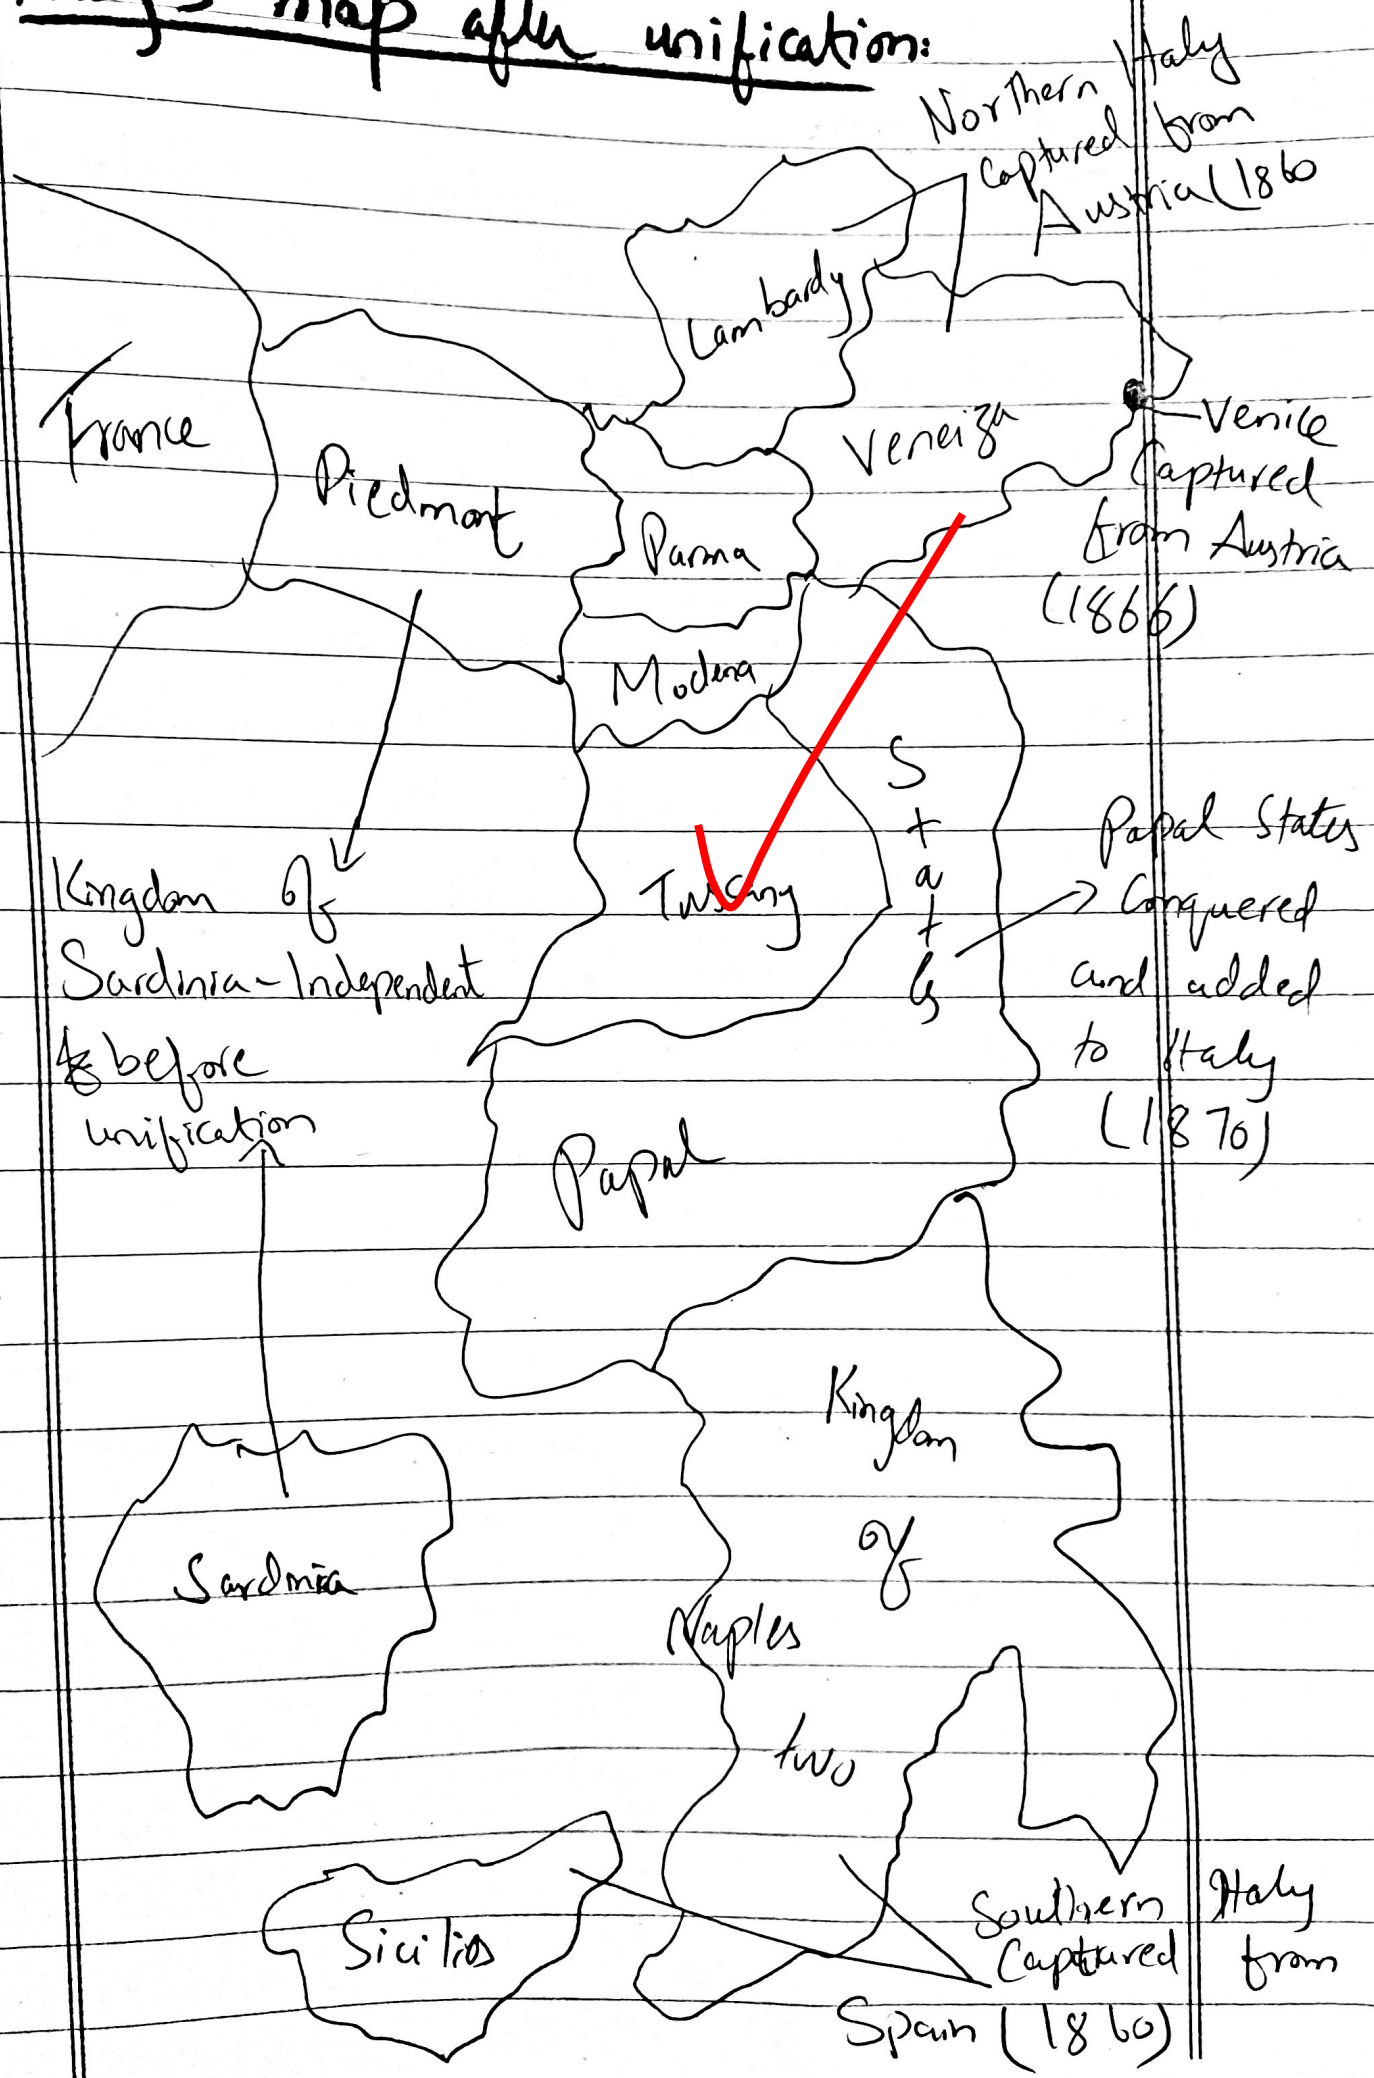 map after unification:
Northern Italy
captured from
Austria (1860
Lambardy
France
Piedmont
Veneiza
Venice
Captured
from Austria
(1866)
Parma
Modena
States
Tuscany
Papal States
Conquered
and added
to Italy
(1870)
Kingdom of
Sardinia-Independent
before
unification
Papal
Kingdom
of
Naples
two
Sardinia
Sicilies
Southern Italy
Captured from
Spain (1860)